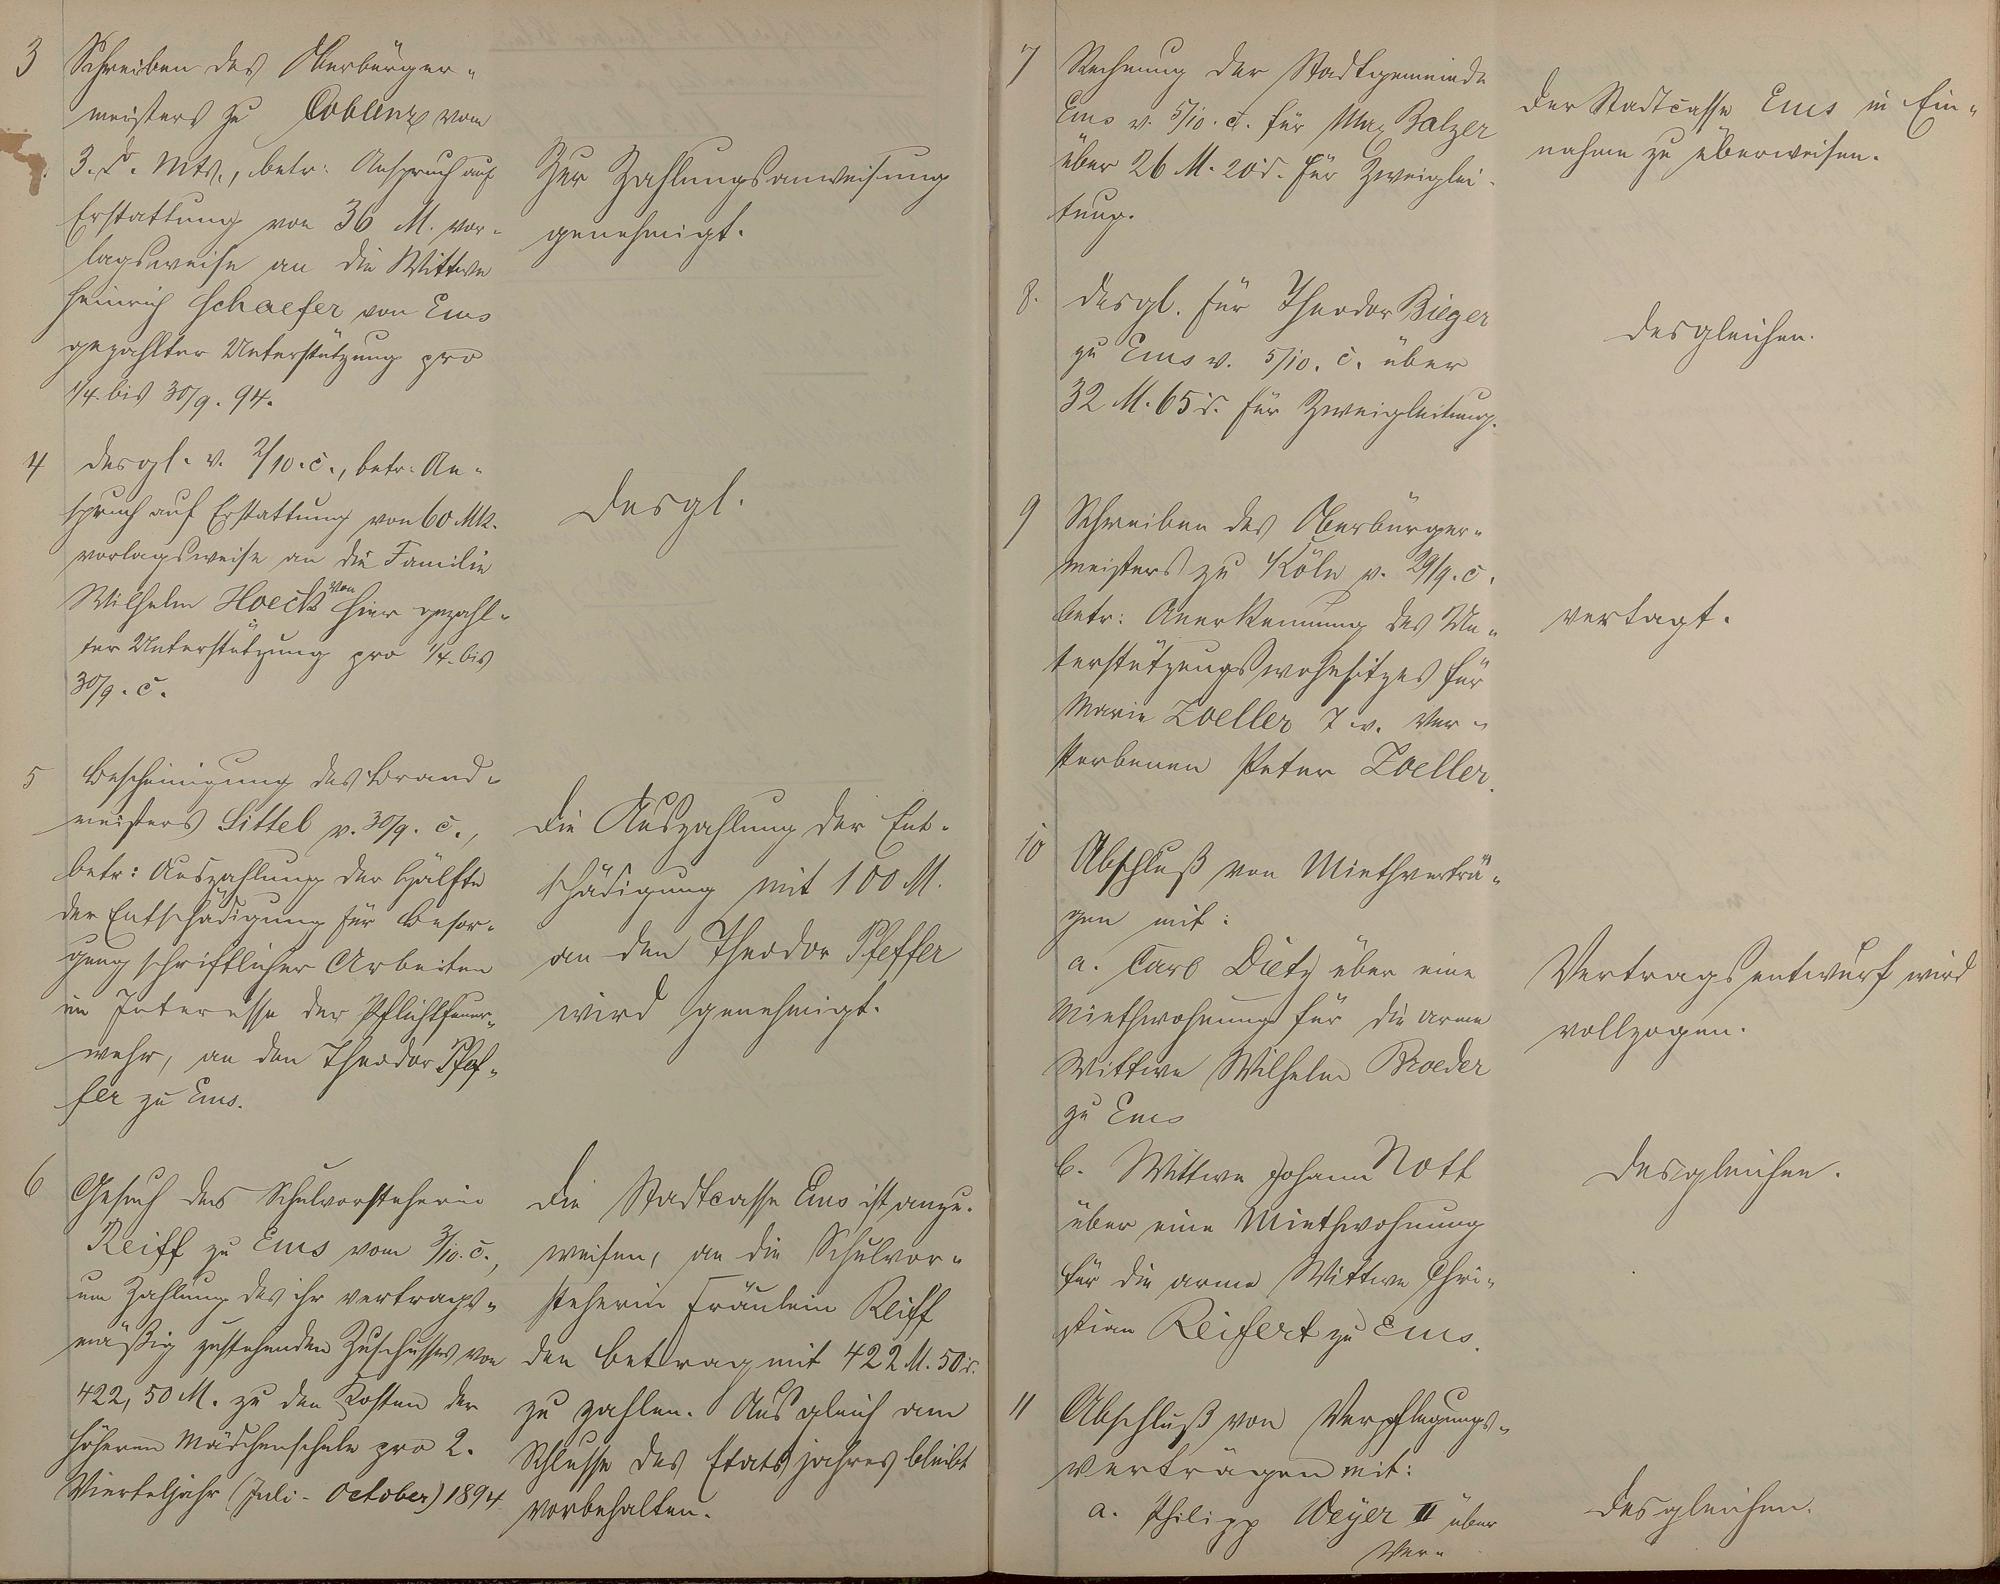 3 Schreiben des Oberbürger-
meisters zu Coblenz vom
3. d. Mts., betr: Anspruch auf
Erstattung von 36 M. vor-
lagsweise an die Wittwe
Heinrich Schaefer von Ems
gezahlter Unterstützung pro
1/4. bis 30/9. 94.
Zur Zahlungsanweisung
genehmigt.
4 desgl. v. 2/10. c., betr: An-
spruch auf Erstattung von 60 Mk.
vorlagsweise an die Familie
Wilhelm Hoeck von hier gezahl-
ter Unterstützung pro 1/4. bis
30/9. c.
desgl.
5 Bescheinigung des Brand-
meisters Sittel v. 30/9. c.,
betr: Auszahlung der Hälfte
der Entschädigung für Besor-
gung schriftlicher Arbeiten
im Interesse der Pflichtfeuer-
wehr, an den Theodor Pfef-
fer zu Ems.
Die Auszahlung der Ent-
schädigung mit 100 M.
an den Theodor Pfeffer
wird genehmigt.
6 Gesuch der Schulvorsteherin
Reiff zu Ems vom 3/10. c.,
um Zahlung des ihr vertrags-
mäßig zustehenden Zuschusses von
422,50 M. zu den Kosten der
höheren Mädchenschule pro 2.
Vierteljahr (Juli - October) 1894
Die Stadtcasse Ems ist anzu-
weisen, an die Schulvor-
steherin Fräulein Reiff
den Betrag mit 422 M. 50 d.
zu zahlen. Ausgleich am
Schlusse des Etatsjahres bleibt
vorbehalten.
7 Rechnung der Stadtgemeinde
Ems v. 5/10. c. für Max Balzer
über 26 M. 20 d. für Zweiglei-
tung.
Der Stadtcasse Ems in Ein-
nahme zu überweisen.
8. desgl. für Theodor Bieger
zu Ems v. 5/10. c. über
32 M. 65 d. für Zweigleitung.
desgleichen.
9 Schreiben des Oberbürger-
meisters zu Köln v. 29/9. c.
betr: Anerkennung des Un-
terstützungswohnsitzes für
Marie Zoeller T. v. Ver-
storbenen Peter Zoeller.
vertagt.
10 Abschluß von Miethverträ-
gen mit:
a. Carl Dietz über eine
Miethwohnung für die arme
Wittwe Wilhelm Broeder
zu Ems
Vertragsentwurf wird
vollzogen.
b. Wittwe Johann Noll
über eine Miethwohnung
für die arme Wittwe Chri-
stian Reifert zu Ems.
desgleichen.
11 Abschluß von Verpflegungs-
verträgen mit:
a. Philipp Weyer II über
Ver-
desgleichen.